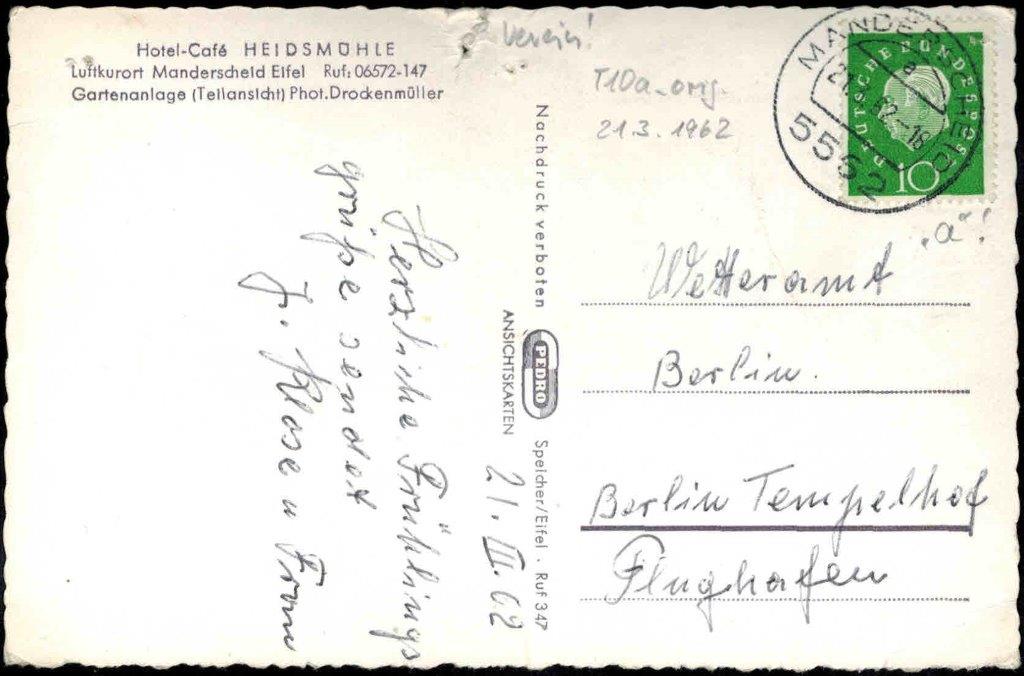 Hotel-Café HEIDSMÜHLE
Luftkurort Manderscheid Eifel Ruf: 06572-147
Gartenanlage (Teilansicht) Phot. Drockenmüller
Verein!
T10a-orig.
21.3.1962
MANDERSCHEID
5552
DEUTSCHE BUNDESPOST
10
"a"!
21. III. 62
Herzliche Frühlings
grüße sendet
J. Klose u Frau
Nachdruck verboten
PEDRO
ANSICHTSKARTEN
Speicher/Eifel . Ruf 347
Wetteramt
Berlin.
Berlin Tempelhof
Flughafen